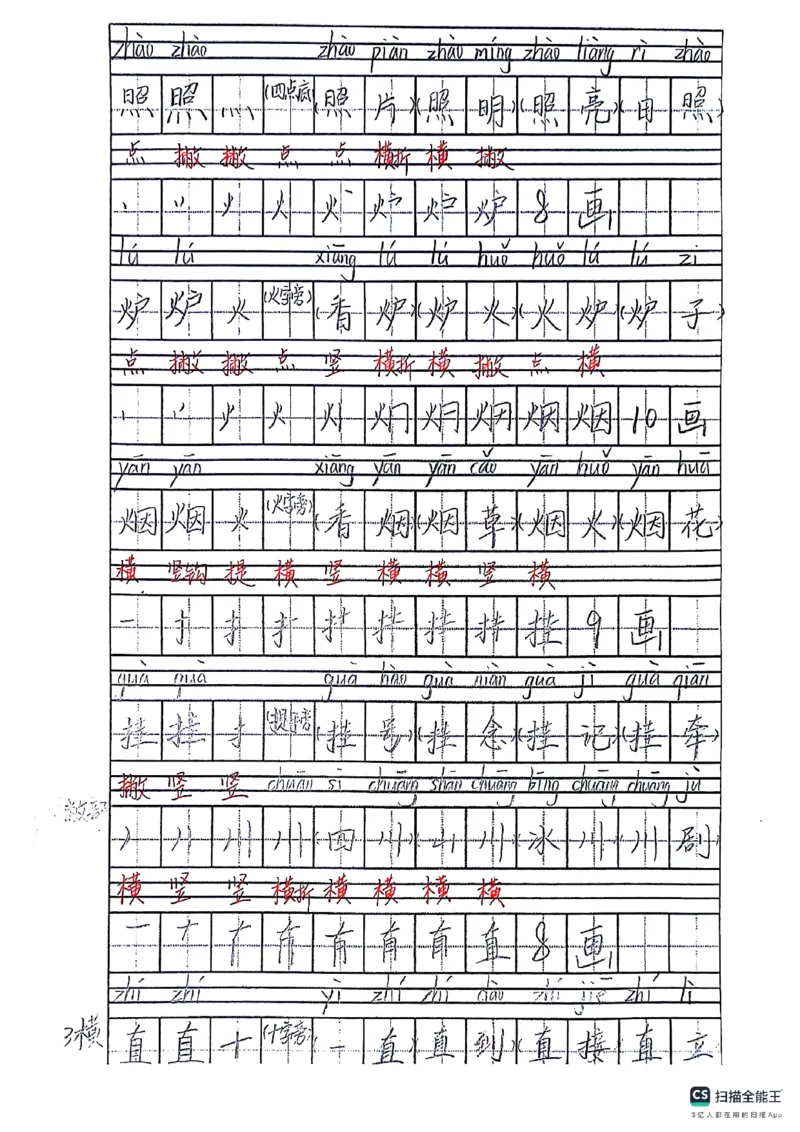 zhào zhào zhào piàn zhào míng zhào liàng rì zhào
照 照 灬 (四点底) (照 片) (照 明) (照 亮) (日 照)
点 撇 撇 点 点 横折 横 撇
炉 8 画
lú lú xiāng lú lú huǒ huǒ lú lú zi
炉 炉 火 (火字旁) (香 炉) (炉 火) (火 炉) (炉 子)
点 撇 撇 点 竖 横折 横 撇 点 横
烟 10 画
yān yān xiāng yān yān cǎo yān huǒ yān huā
烟 烟 火 (火字旁) (香 烟) (烟 草) (烟 火) (烟 花)
横 竖钩 提 横 竖 横 横 竖 横
一 扌 挂 9 画
guà guà guà hào guà niàn guà jì guà qiān
挂 挂 扌 (提手旁) (挂 号) (挂 念) (挂 记) (挂 牵)
撇 竖 竖 chuān sì chuāng shān chuāng bīng chuāng chuāng jù
丿 川 川 (四 川) (山 川) (冰 川) (川 剧)
横 竖 竖 横折 横 横 横 横
一 十 直 8 画
zhí zhí yì zhí zhí dào zhí jiē zhí lì
3横 直 直 十 (十字旁) (一 直) (直 到) (直 接) (直 立
CS 扫描全能王
3亿人都在用的扫描App